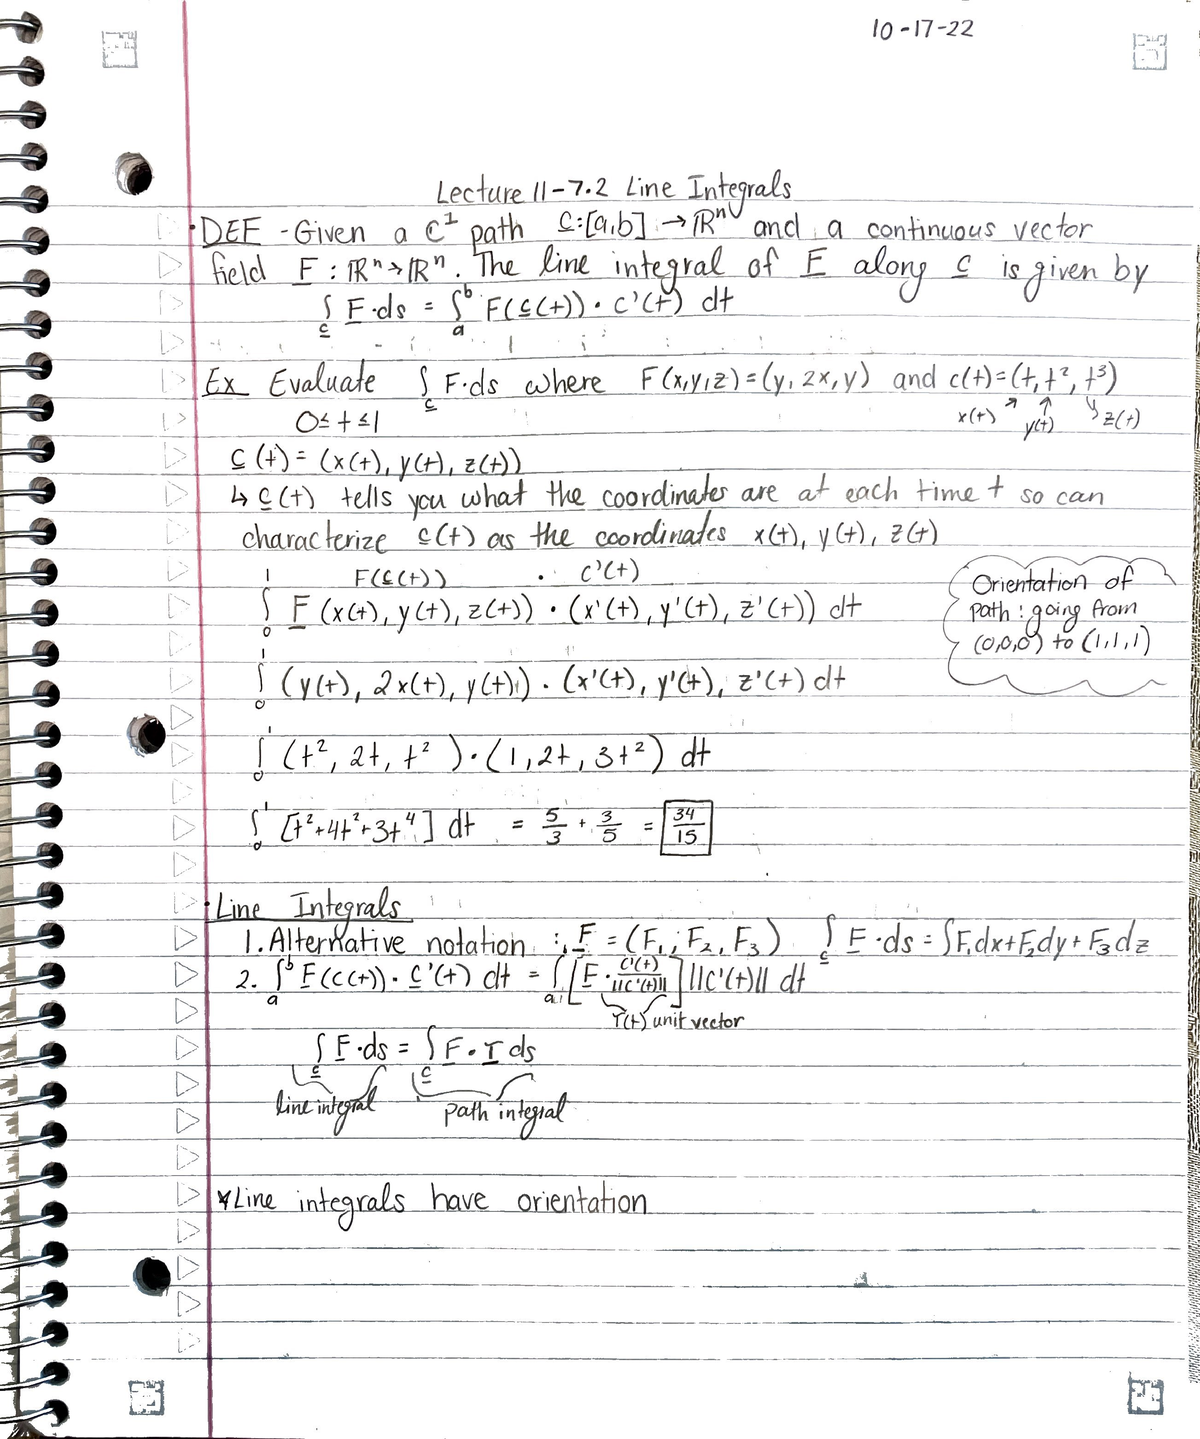 10-17-22
Lecture 11-7.2 Line Integrals
·DEF - Given a C¹ path c:[a,b] → ℝⁿ and a continuous vector
field F : ℝⁿ→ℝⁿ. The line integral of F along c is given by
∫_c F·ds = ∫_a^b F(c(t)) · c'(t) dt
Ex Evaluate ∫_c F·ds where F(x,y,z)=(y, 2x, y) and c(t)=(t, t², t³)
x(t) y(t) z(t)
0≤t≤1
c(t) = (x(t), y(t), z(t))
↳ c(t) tells you what the coordinates are at each time t so can
characterize c(t) as the coordinates x(t), y(t), z(t)
F(c(t)) · c'(t)
∫_0^1 F(x(t), y(t), z(t)) · (x'(t), y'(t), z'(t)) dt
Orientation of
path: going from
(0,0,0) to (1,1,1)
∫_0^1 (y(t), 2x(t), y(t)) · (x'(t), y'(t), z'(t) dt
∫_0^1 (t², 2t, t²) · (1, 2t, 3t²) dt
∫_0^1 [t²+4t²+3t⁴] dt = 5/3 + 3/5 = 34/15
·Line Integrals
1. Alternative notation : F = (F₁, F₂, F₃) ∫_c F·ds = ∫F₁dx+F₂dy+F₃dz
2. ∫_a^b F(c(t)) · c'(t) dt = ∫_a [F · c'(t)/||c'(t)||] ||c'(t)|| dt
T(t) unit vector
∫_c F·ds = ∫_c F·T ds
line integral path integral
*Line integrals have orientation